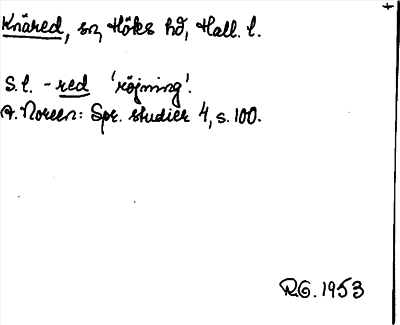 Knäred, sn, Höks hd, Hall. l.
S.l. -red 'röjning'.
A. Noreen: Spr. studier 4, s. 100.
R.G. 1953